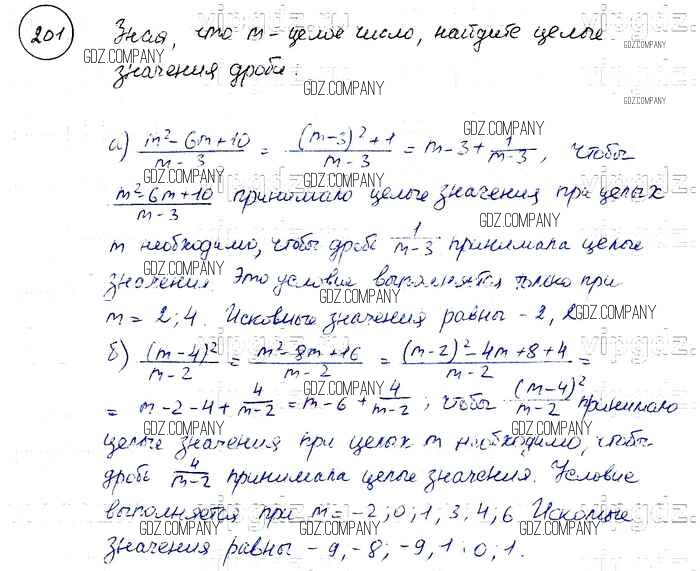 201 Зная, что m - целое число, найдите целые
значения дроби:
а) (m² - 6m + 10)/(m - 3) = ((m - 3)² + 1)/(m - 3) = m - 3 + 1/(m - 3), чтобы
(m² - 6m + 10)/(m - 3) принимало целые значения при целых
m необходимо, чтобы дробь 1/(m - 3) принимала целые
значения. Это условие выполняется только при
m = 2; 4. Искомые значения равны -2, 2
б) (m - 4)²/(m - 2) = (m² - 8m + 16)/(m - 2) = ((m - 2)² - 4m + 8 + 4)/(m - 2) =
= m - 2 - 4 + 4/(m - 2) = m - 6 + 4/(m - 2), чтобы (m - 4)²/(m - 2) принимало
целые значения при целых m необходимо, чтобы
дробь 4/(m - 2) принимала целые значения. Условие
выполняется при m = -2; 0; 1, 3, 4; 6 Искомые
значения равны -9, -8; -9, 1; 0; 1.
GDZ.COMPANY
vipgdz.